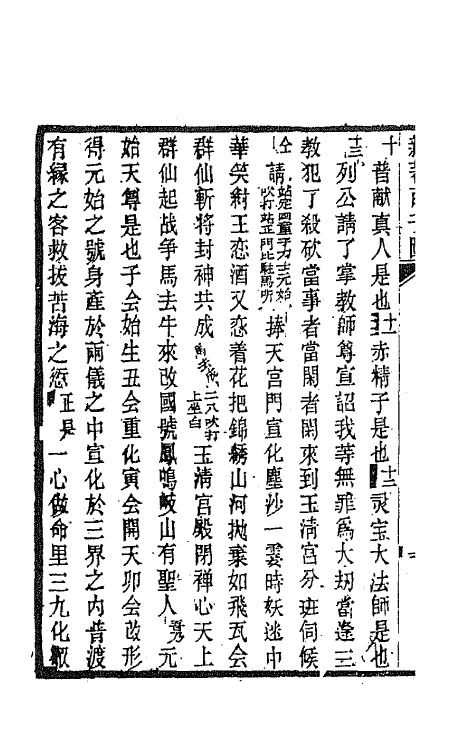 十普献真人是也十一赤精子是也十二灵宝大法師是也
十三列公請了掌教師尊宣詔我等無罪爲大刼當逢三
教犯了殺砍當事者當閑者閑來到玉清宮分班伺候
仝請元始捧天宮門宣化塵沙一雲時妖迷中
華笑紂王恋酒又恋着花把錦綉山河抛棄如飛瓦会
群仙斬将封神共成吹打上坐白玉清宮殿閉禅心天上
群仙起战争馬去牛來改國號鳳鳴岐山有聖人元
始天尊是也子会始生丑会重化寅会開天卯会改形
得元始之號身產於兩儀之中宣化於三界之内普渡
有緣之客救拔苦海之愆正是一心做命里三九化